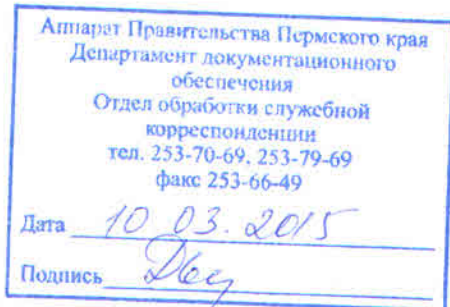 Аппарат Правительства Пермского края
Департамент документационного
обеспечения
Отдел обработки служебной
корреспонденции
тел. 253-70-69, 253-79-69
факс 253-66-49
Дата 10 03. 2015
Подпись